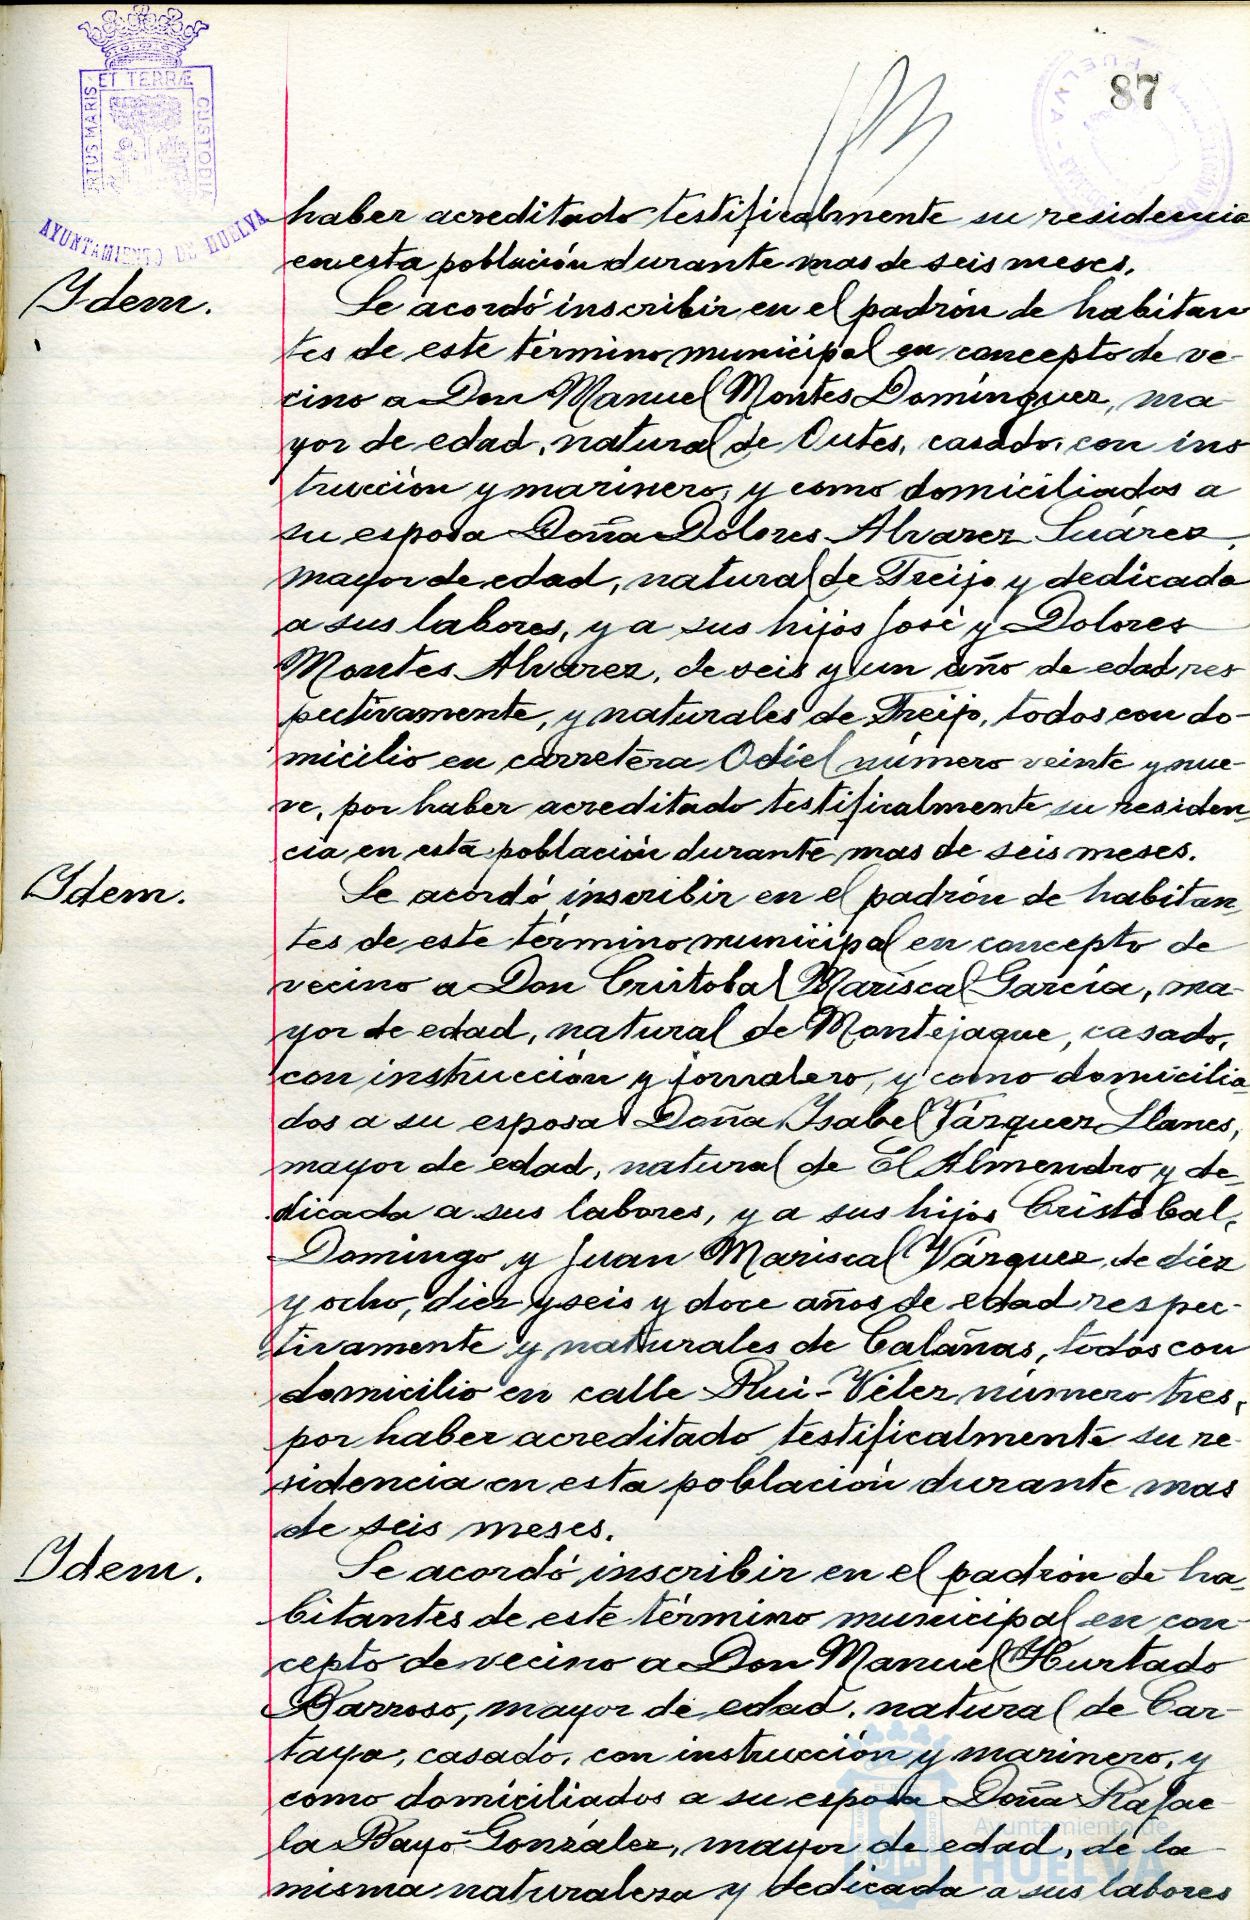 87
PORTUS MARIS ET TERRÆ CUSTODIA
AYUNTAMIENTO DE HUELVA
haber acreditado testificalmente su residencia
en esta población durante mas de seis meses.
Idem.
Se acordó inscribir en el padrón de habitan
tes de este término municipal en concepto de ve-
cino a Don Manuel Montes Domínguez, ma-
yor de edad, natural de Outes, casado, con ins
trucción y marinero, y como domiciliados a
su esposa Doña Dolores Alvarez Suárez,
mayor de edad, natural de Freijo y dedicada
a sus labores, y a sus hijos José y Dolores
Montes Alvarez, de seis y un año de edad res
pectivamente, y naturales de Freijo, todos con do-
micilio en carretera Odiel número veinte y nue-
ve, por haber acreditado testificalmente su residen
cia en esta población durante mas de seis meses.
Idem.
Se acordó inscribir en el padrón de habitan
tes de este término municipal en concepto de
vecino a Don Cristobal Mariscal García, ma-
yor de edad, natural de Montejaque, casado,
con instrucción y jornalero, y como domicilia
dos a su esposa Doña Isabel Vázquez Llanes,
mayor de edad, natural de El Almendro y de-
dicada a sus labores, y a sus hijos Cristóbal,
Domingo y Juan Mariscal Vázquez, de diez
y ocho, diez y seis y doce años de edad respec-
tivamente y naturales de Calañas, todos con
domicilio en calle Rui-Vélez número tres,
por haber acreditado testificalmente su re-
sidencia en esta población durante mas
de seis meses.
Idem.
Se acordó inscribir en el padrón de ha-
bitantes de este término municipal en con-
cepto de vecino a Don Manuel Hurtado
Barroso, mayor de edad, natural de Car-
taya, casado, con instrucción y marinero, y
como domiciliados a su esposa Doña Rafae-
la Bayo González, mayor de edad, de la
misma naturaleza y dedicada a sus labores
Ayuntamiento de
HUELVA